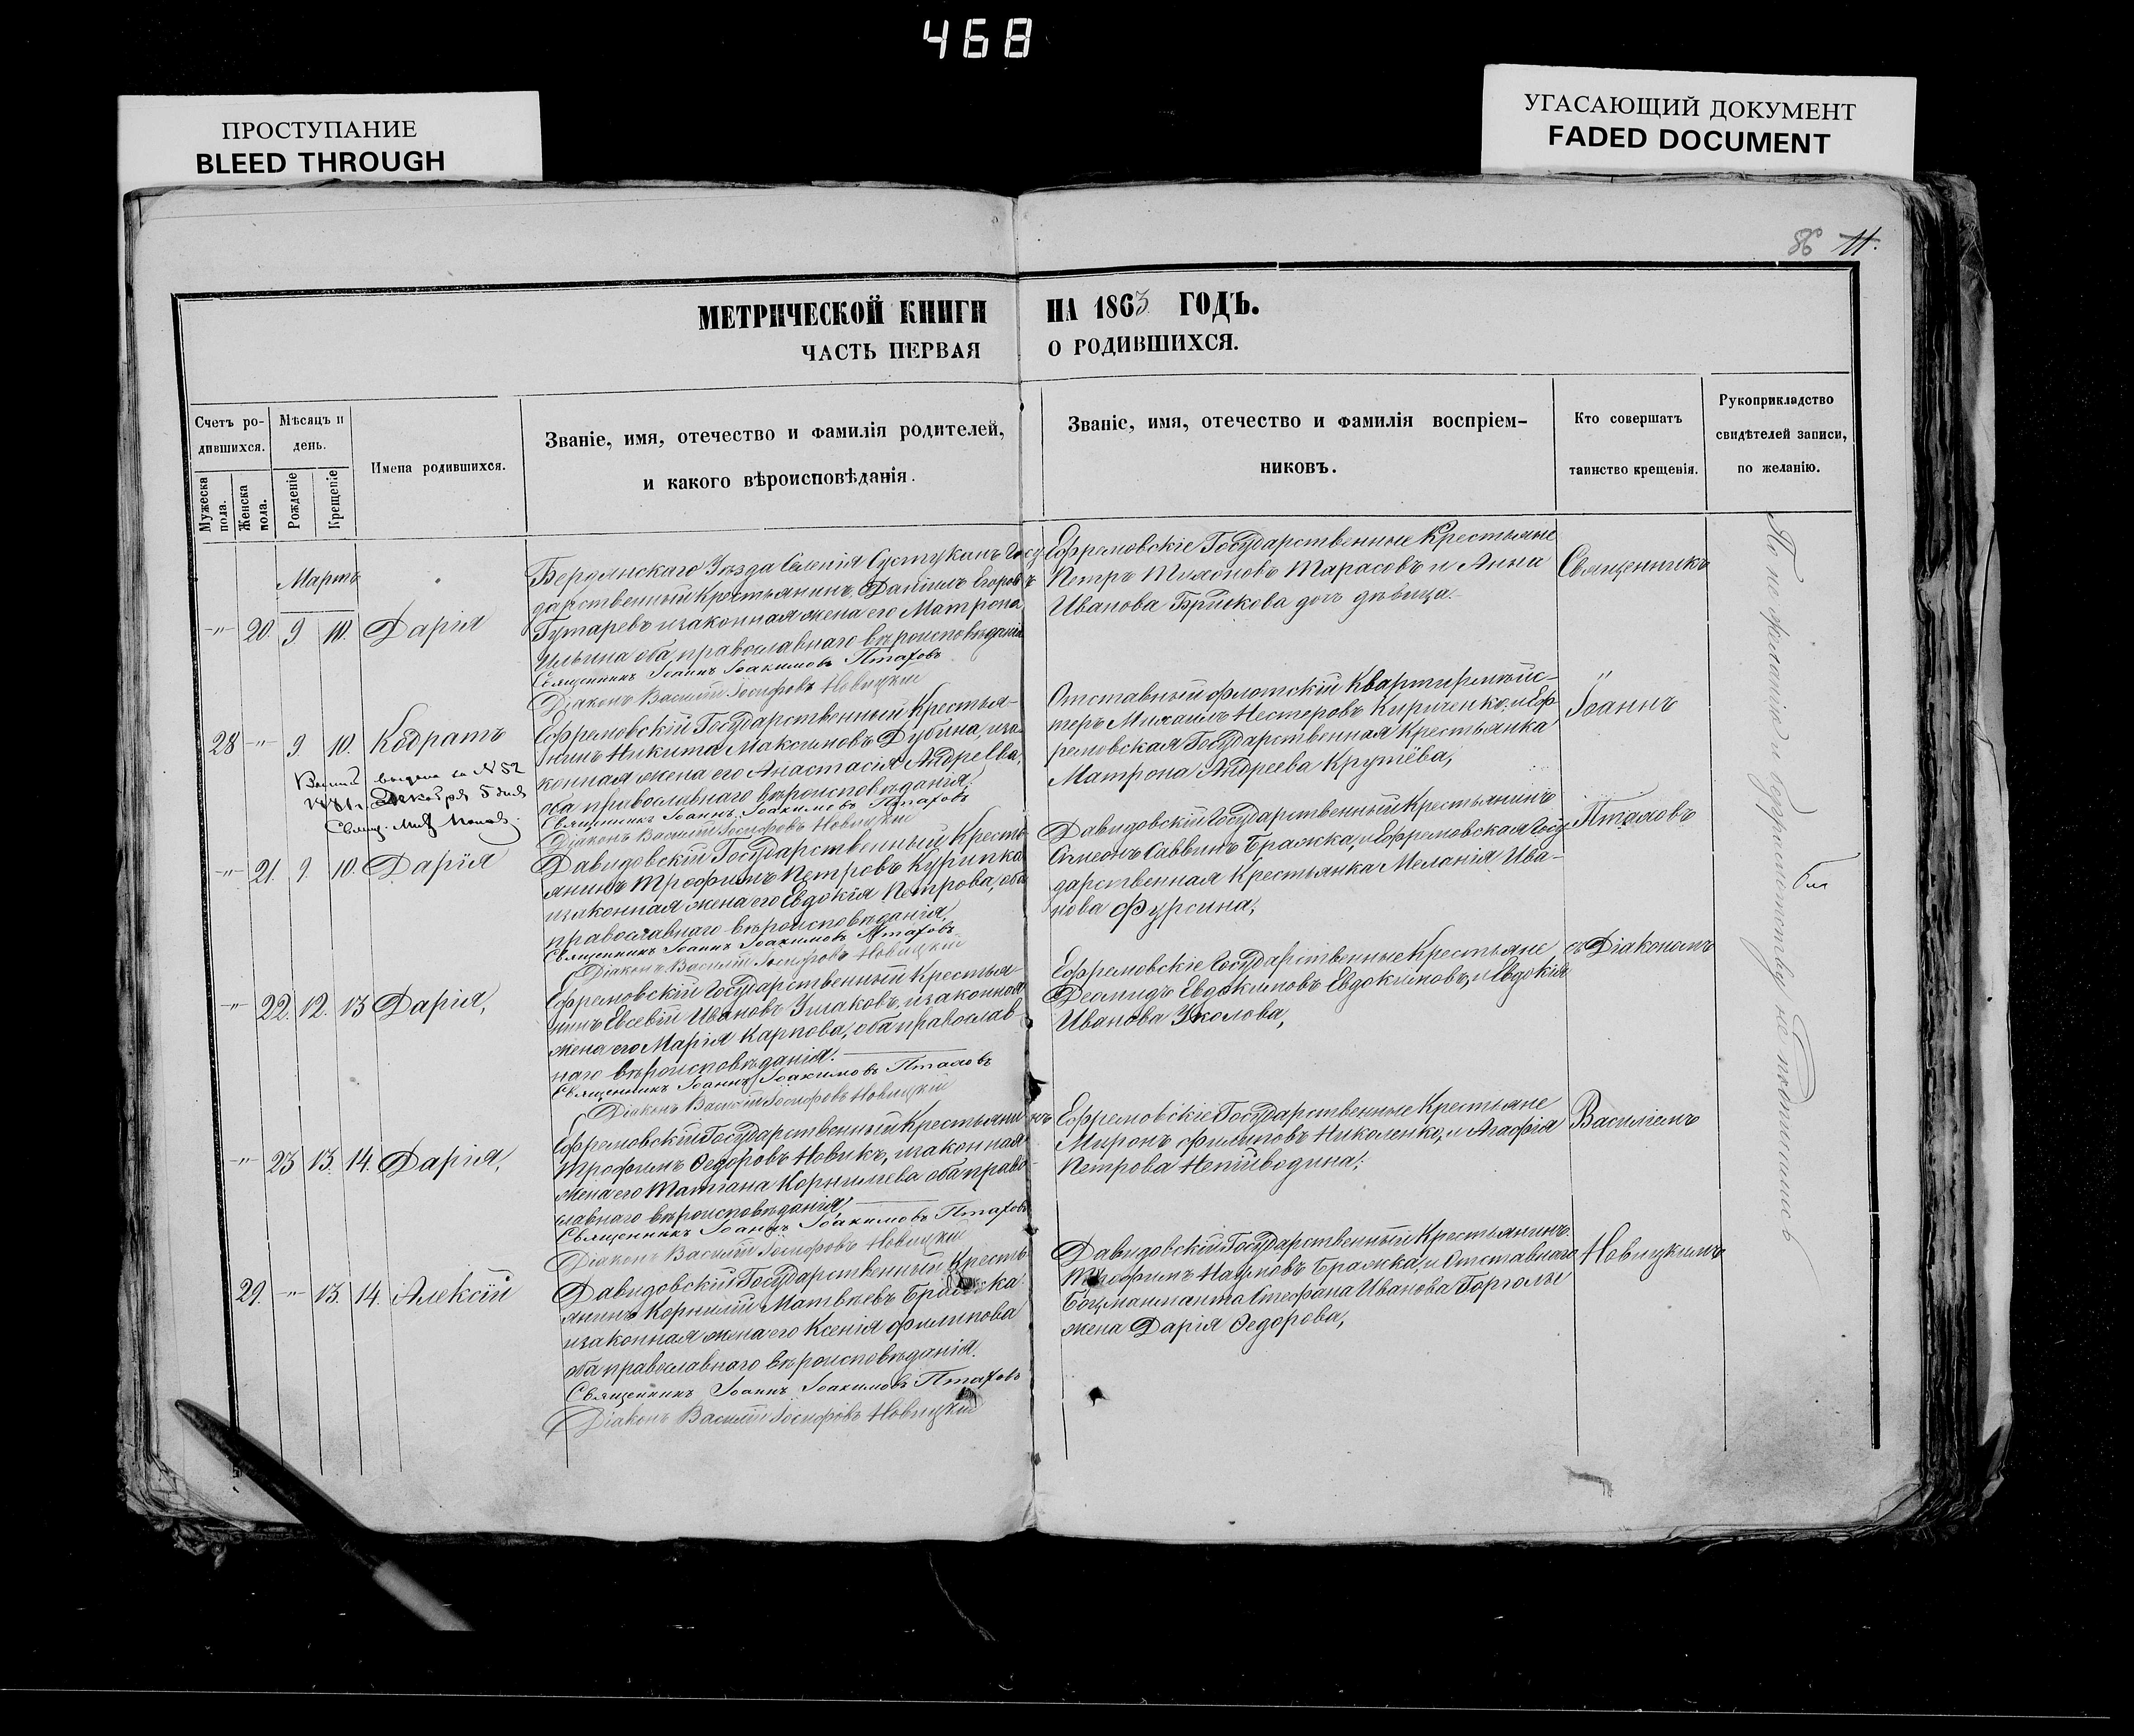 468
ПРОСТУПАНИЕ
BLEED THROUGH
УГАСАЮЩИЙ ДОКУМЕНТ
FADED DOCUMENT
86 11.
МЕТРИЧЕСКОЙ КНИГИ НА 1863 ГОДЪ.
ЧАСТЬ ПЕРВАЯ О РОДИВШИХСЯ.
Счетъ ро-
дившихся.
Мѣсяцъ и
день.
Мужеска пола.
Женска пола.
Рожденіе
Крещеніе
Имена родившихся.
Званіе, имя, отечество и фамилія родителей,
и какого вѣроисповѣданія.
Званіе, имя, отечество и фамилія воспріем-
никовъ.
Кто совершатъ
таинство крещенія.
Рукоприкладство
свидѣтелей записи,
по желанію.
Мартъ
-"- 20. 9 10. Дарія
Бердянскаго Уѣзда Селенія Государ
дарственный Крестьянинъ Даніилъ Егоровъ
Гутаревъ изаконная жена его Матрона
Ильина оба православнаго вѣроисповѣданія
Священникъ Іоаннъ Іоакимовъ Птаховъ
Діаконъ Василій Іосифовъ Новицкій
Ефремовскіе Государственные Крестьяне
Петръ Тихоновъ Тарасовъ и Анна
Иванова дочь дѣвица.
Священникъ
28 -"- 9 10. Кодратъ
Ефремовскій Государственный Крестья-
нинъ Никита Максимовъ Дубина, иза-
конная жена его Анастасія Андреева,
оба православнаго вѣроисповѣданія,
Священникъ Іоаннъ Іоакимовъ Птаховъ
Діаконъ Василій Іосифовъ Новицкій
выдана за № 52
декабря 5 дня
Свящ. Попов.
Отставный флотскій Квартирмейс-
теръ Михаилъ Нестеровъ Кириченко, и Еф-
ремовская Государственная Крестьянка
Матрона Андреева Крутёва;
Іоаннъ
-"- 21. 9. 10. Дарія
Давидовскій Государственный Кресть-
янинъ Трофимъ Петровъ Курипка
изаконная жена его Евдокія Петрова, оба
православнаго вѣроисповѣданія,
Священникъ Іоаннъ Іоакимовъ Птаховъ
Діаконъ Василій Іосифовъ Новицкій
Давидовскій Государственный Крестьянинъ
Симеонъ Саввинъ Бражка, и Ефремовская Госу-
дарственная Крестьянка Меланія Ива-
нова Фурсина;
Птаховъ
-"- 22. 12. 13 Дарія,
Ефремовскій Государственный Крестья-
нинъ Евсевій Ивановъ Ушаковъ, изаконная
жена его Марія Карпова, оба православ
наго вѣроисповѣданія.
Священникъ Іоаннъ Іоакимовъ Птаховъ
Діаконъ Василій Іосифовъ Новицкій
Ефремовскіе Государственные Крестьяне
Деомидъ Евдокимовъ Евдокимовъ, и Евдокія
Иванова Уколова,
съ Діакономъ
-"- 23 13. 14. Дарія,
Ефремовскій Государственный Крестьянинъ
Трофимъ Ѳедоровъ Новикъ, изаконная
жена его Татіана Корнилева оба право-
славнаго вѣроисповѣданія,
Священникъ Іоаннъ Іоакимовъ Птаховъ
Діаконъ Василій Іосифовъ Новицкій
Ефремовскіе Государственные Крестьяне
Миронъ Филиповъ Николенко, и Агафія
Петрова Непійводина;
Василіемъ
29. -"- 13. 14. Алексій
Давидовскій Государственный Кресть-
янинъ Корнилій Матвѣевъ Бражка
изаконная жена его Ксенія Филипова
оба православнаго вѣроисповѣданія.
Священникъ Іоаннъ Іоакимовъ Птаховъ
Діаконъ Василій Іосифовъ Новицкій
Давидовскій Государственный Крестьянинъ
Трофимъ Наумовъ Бражка, и Отставнаго
Боцманманта Стефана Иванова Горголы
жена Дарія Ѳедорова,
Новицкимъ
По не желанію и безграмотству не подписались